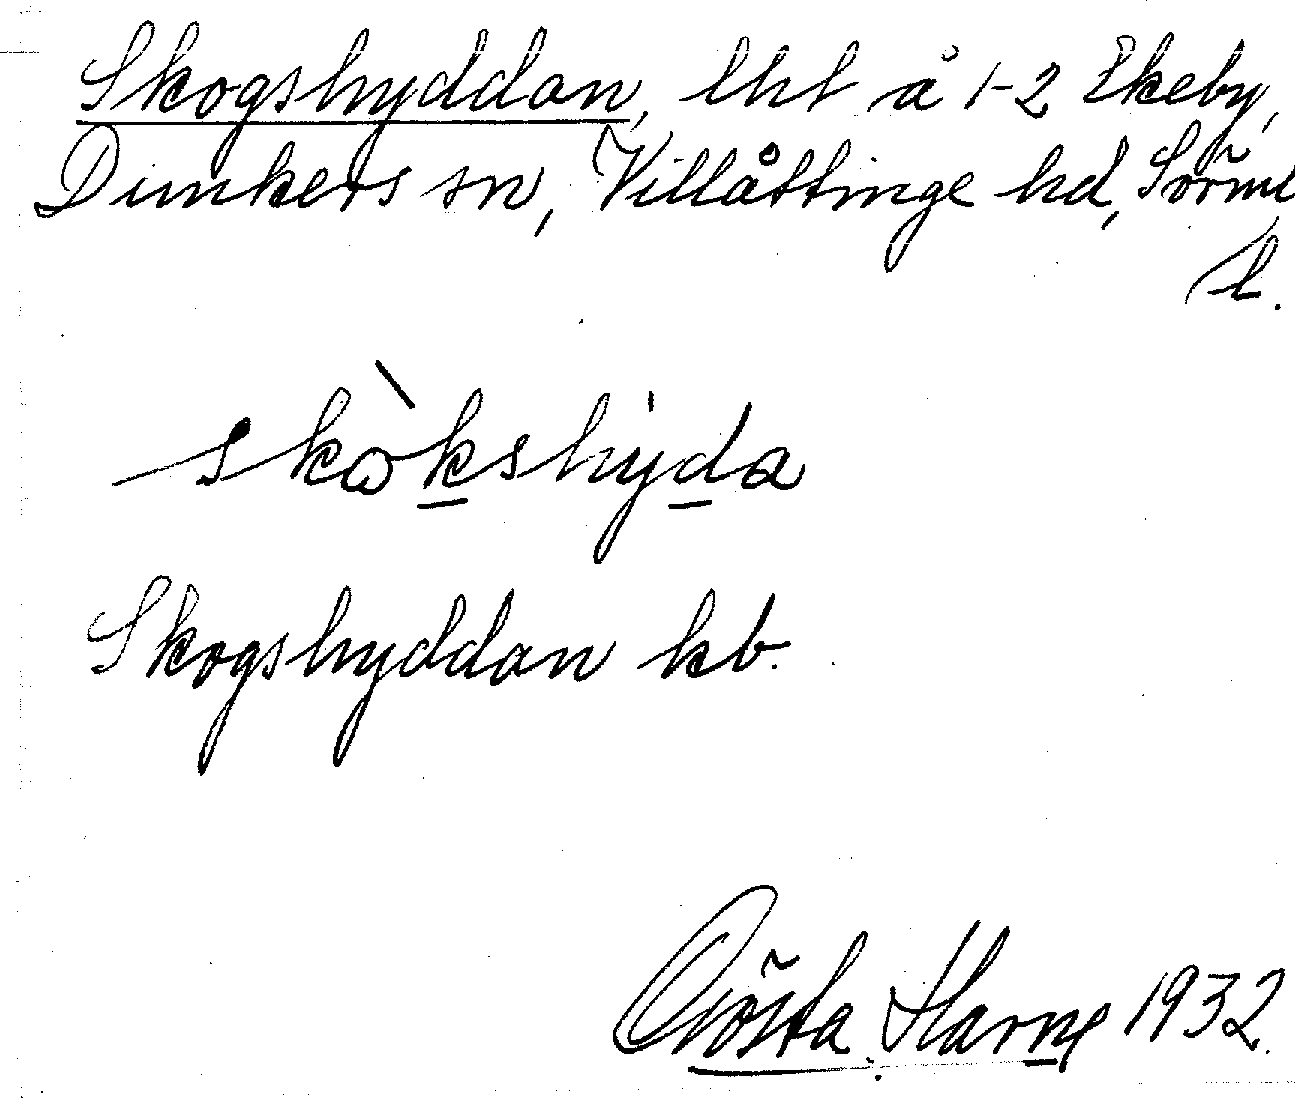 Skogshyddan, lht å 1-2 Ekeby,
Dunkers sn, Villåttinge hd, Sörml
l.
skòkshyda
Skogshyddan kb.
Gösta Harne 1932.